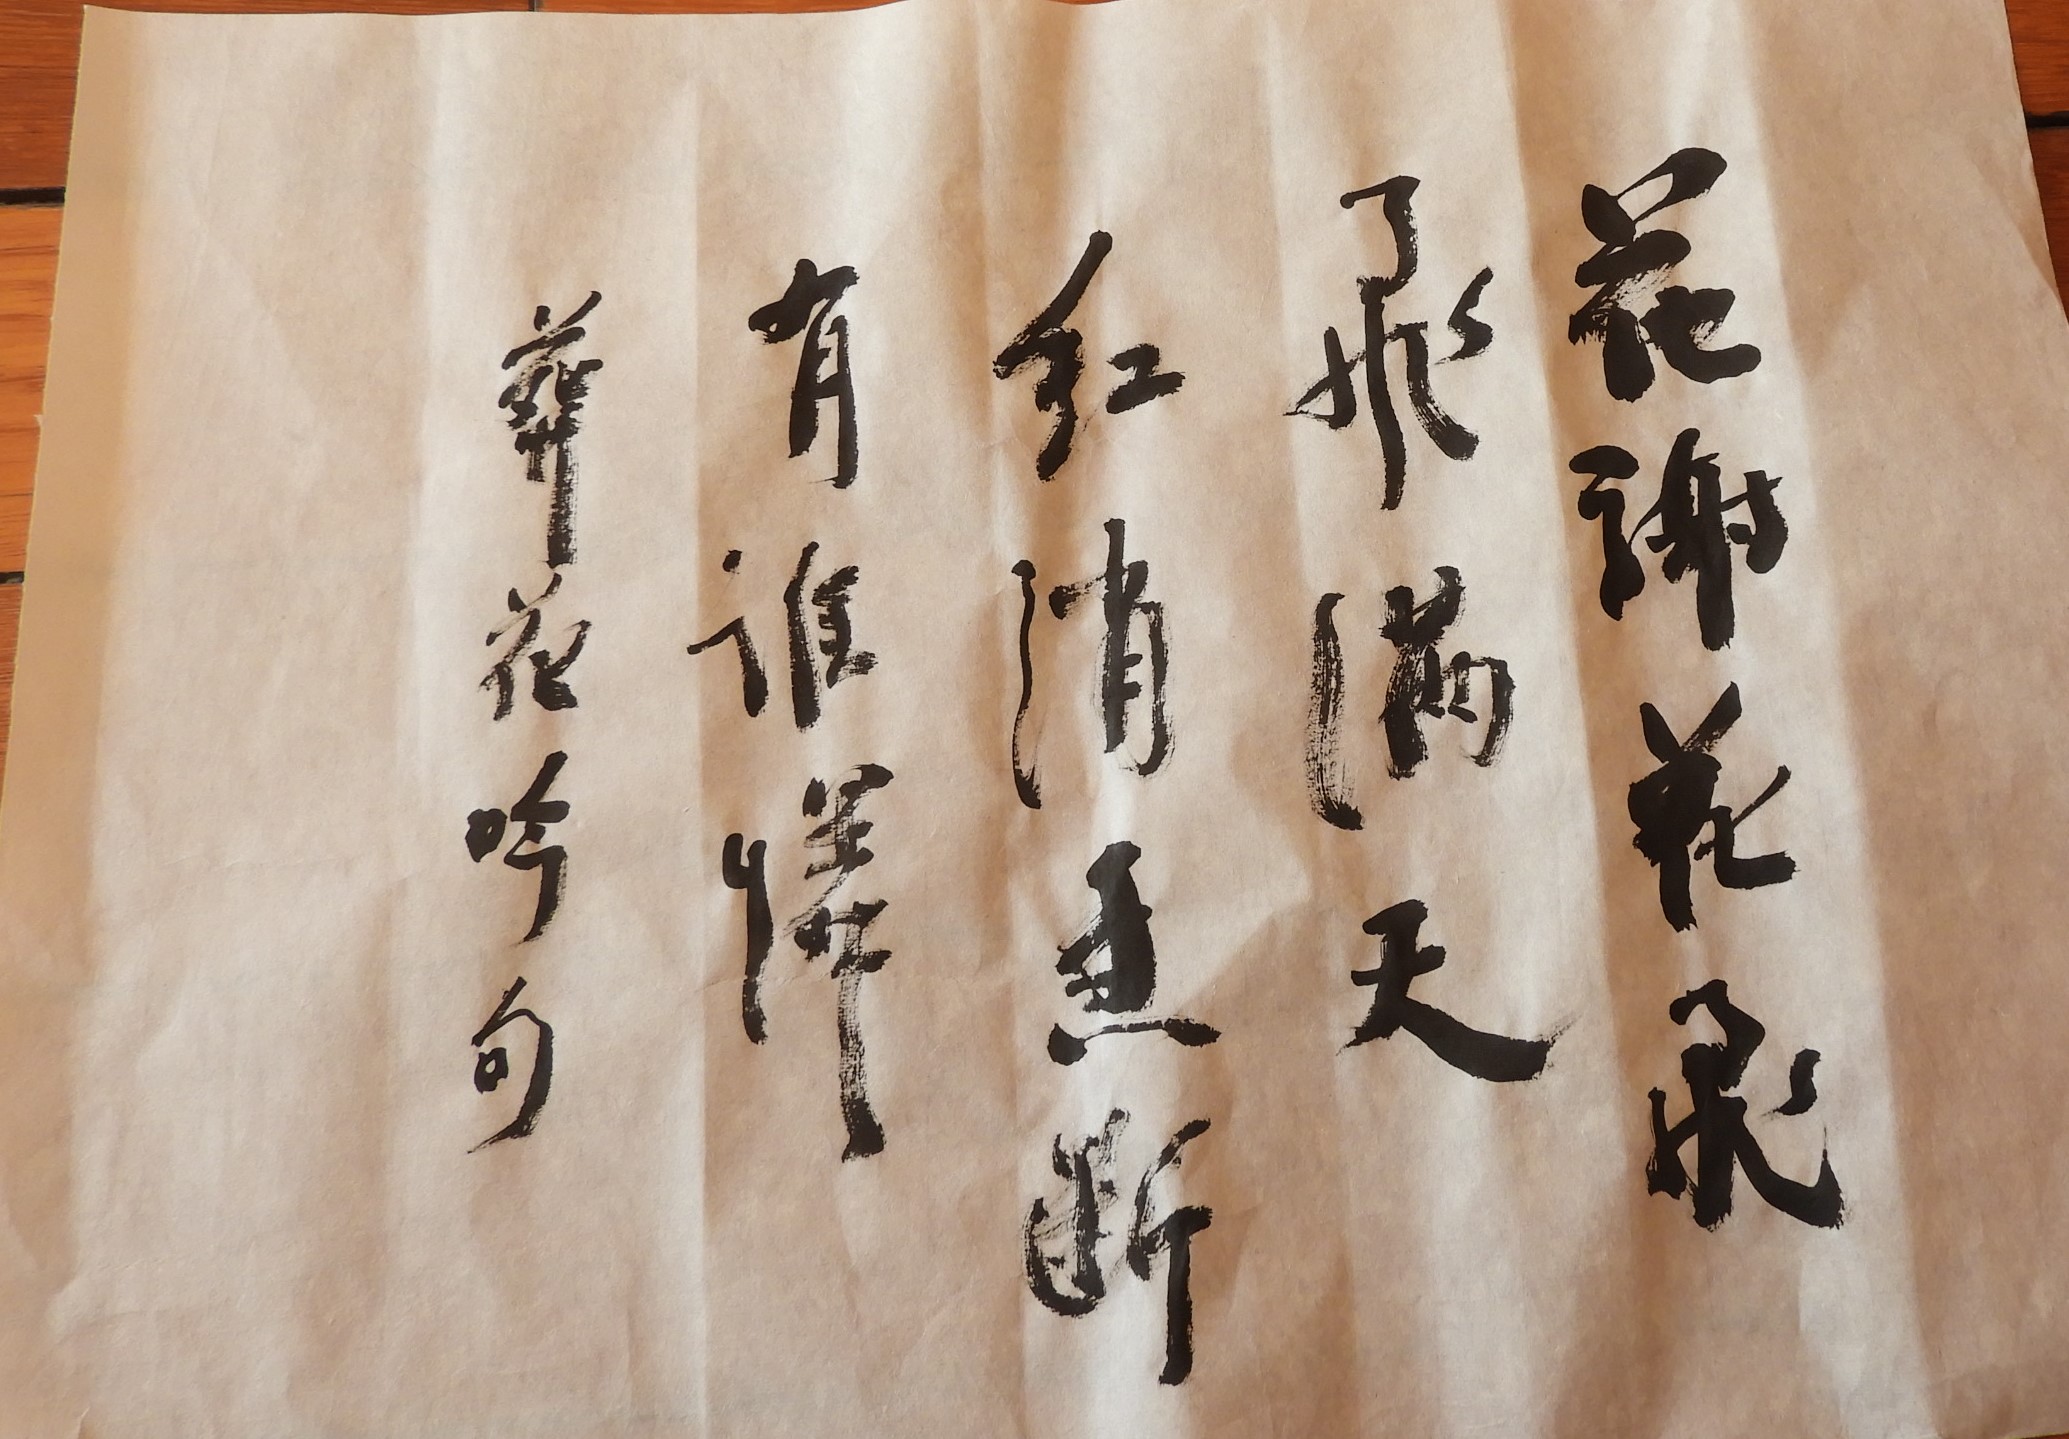 花謝花飛
飛滿天
红消香斷
有誰憐
葬花吟句